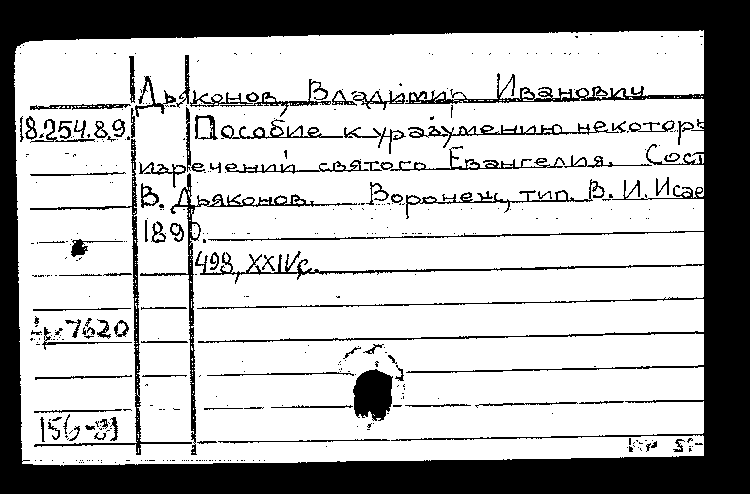 Дьяконов, Владимир Иванович
18.254.8.9. Пособие к уразумению некоторы
изречений святого Евангелия. Сост
В. Дьяконов. Воронеж, тип. В. И. Исае
1890.
498, XXIV с.
7620
156-81